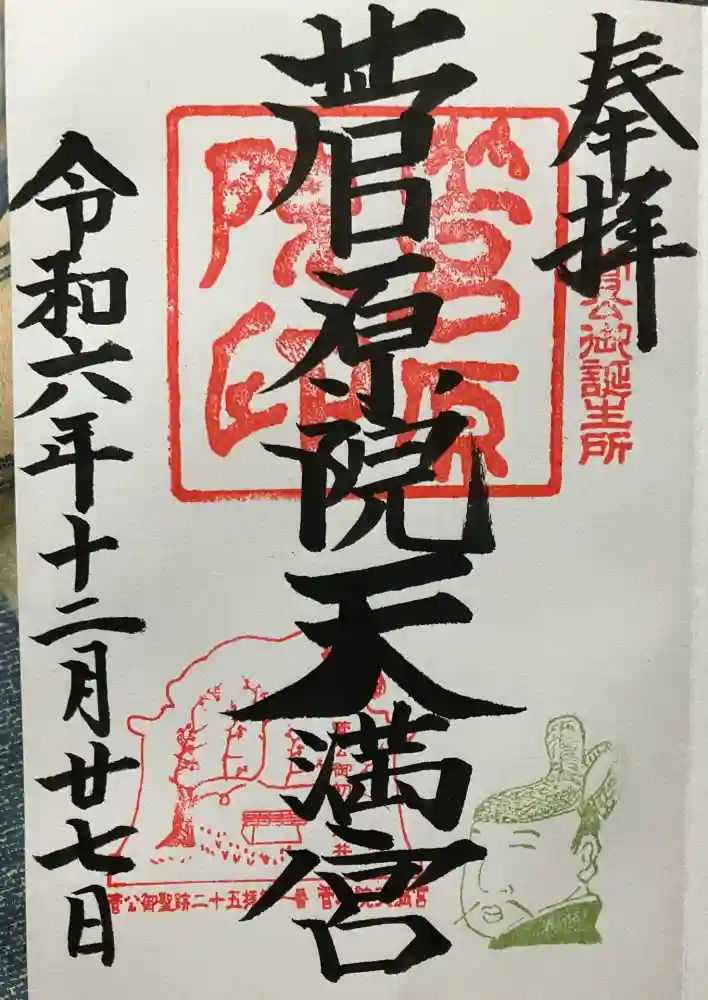 奉拝
菅公御誕生所
菅原院天満宮
菅原院印
令和六年十二月廿七日
菅公御聖跡二十五拝第一番 菅原院天満宮